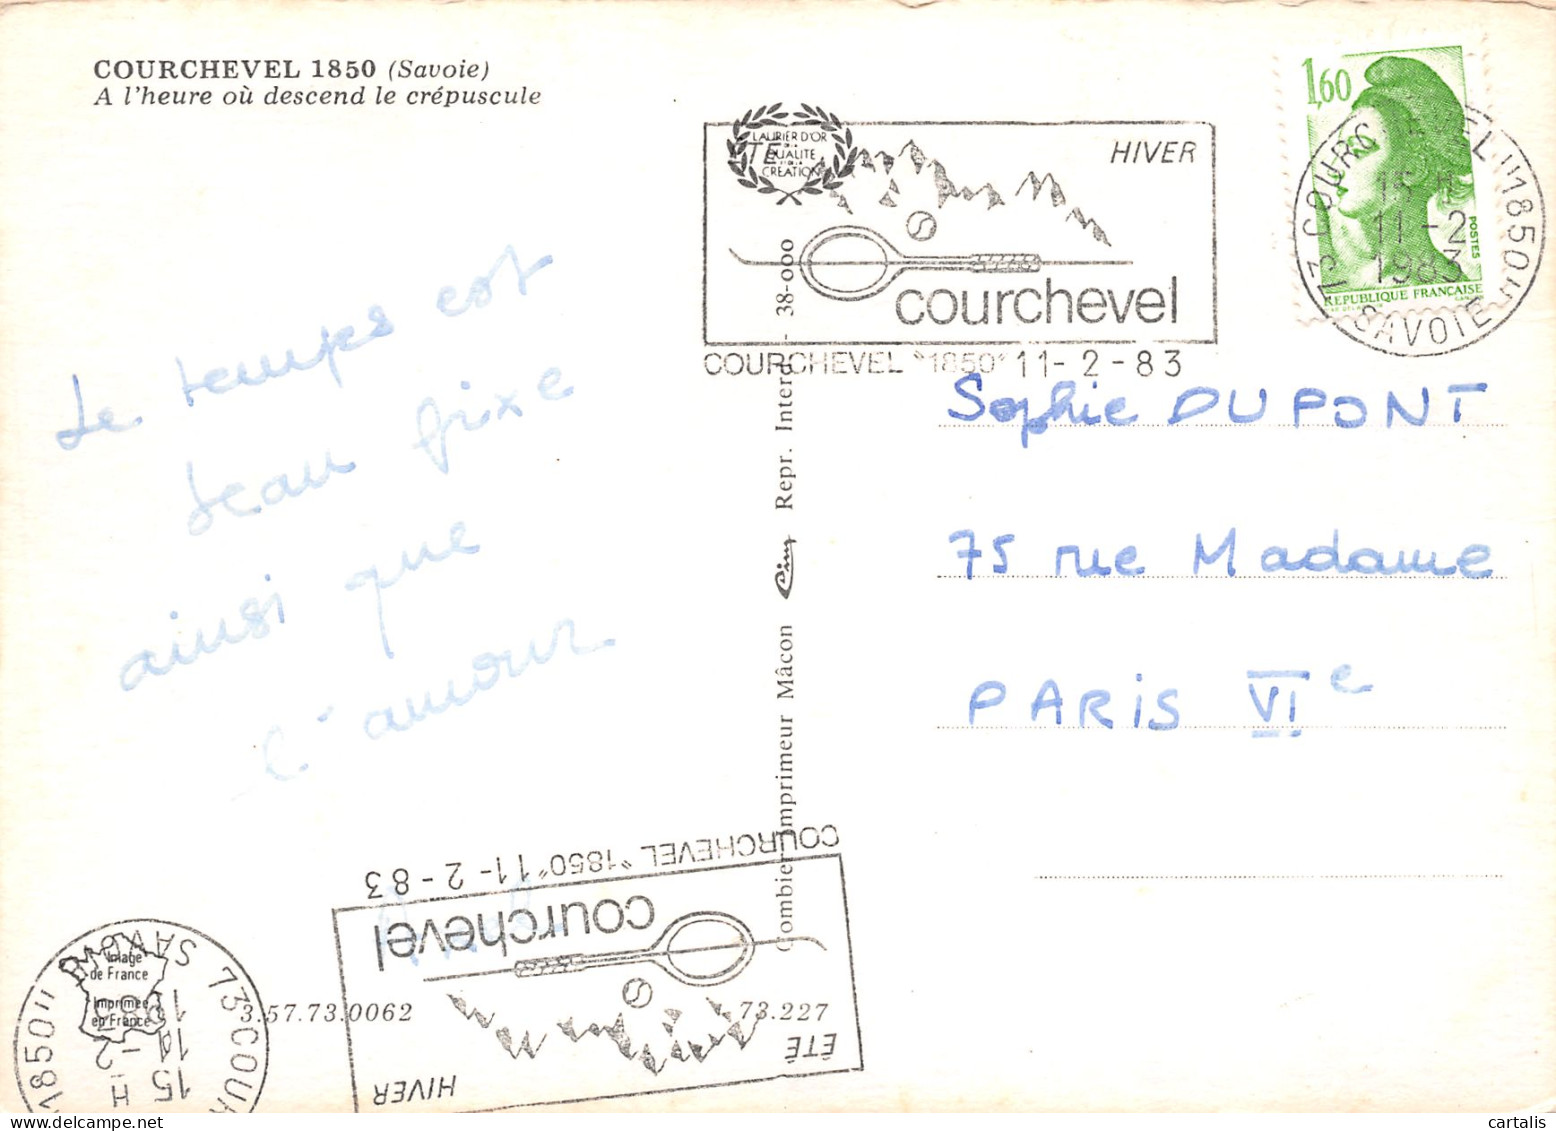 COURCHEVEL 1850 (Savoie)
A l'heure où descend le crépuscule
Le temps est
beau fixe
ainsi que
l'amour
LAURIER D'OR
DE LA
QUALITE
ET DE LA
CREATION
HIVER
courchevel
COURCHEVEL "1850" 11-2-83
1,60
POSTES
REPUBLIQUE FRANÇAISE
73 COURCHEVEL "1850"
15 H
11-2
1983
SAVOIE
Sophie DUPONT
75 rue Madame
PARIS VIe
Combier Imprimeur Mâcon Cim Repr. Interd. - 38-000
COURCHEVEL "1850" 11-2-83
courchevel
ÉTÉ
HIVER
73 COUR
1850"
SAVO
15 H
11-2
Image
de France
Imprimée
en France
3.57.73.0062
73.227
cartalis